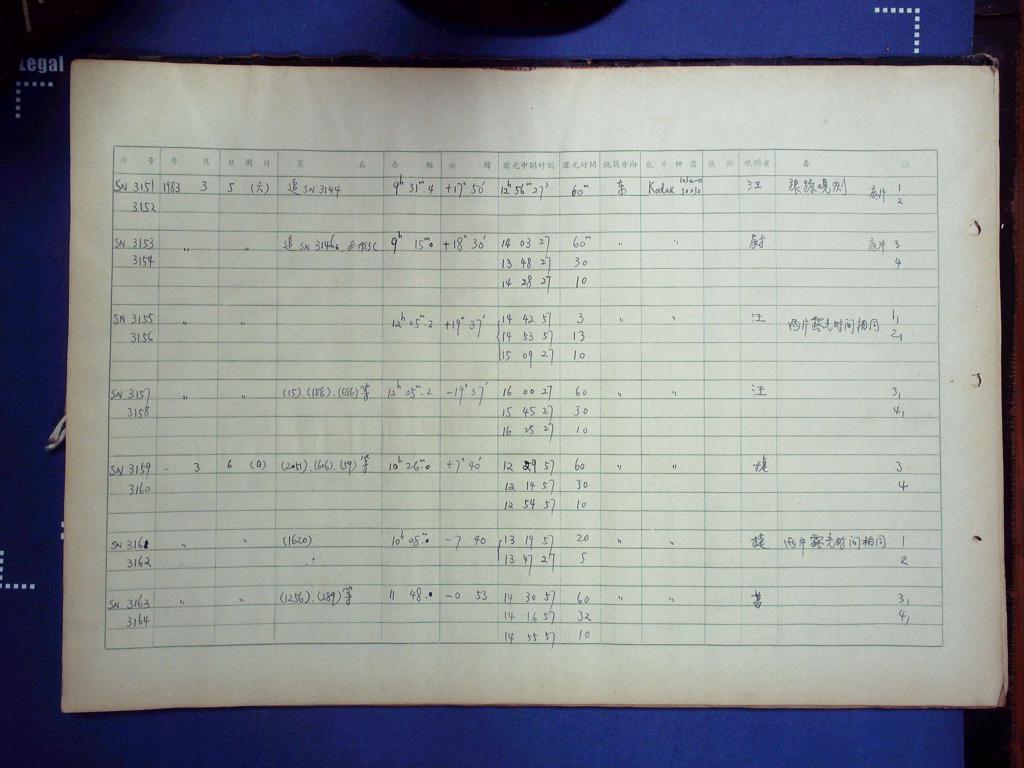 Legal
序 号 年 月 日 周日 星 名 赤 经 赤 纬 露光中间时刻 露光时间 镜筒方向 底片种类 焦距 观测者 备 注
SN 3151 1983 3 5 (六) 追 SN 3144 9h 31m.4 +17° 50′ 12h 56m 27s 60m 东 Kodak 103a-O 30×30 汪 跟踪观测 底片 1
3152 2
SN 3153 〃 〃 追 SN 3146 9h 15m.0 +18° 30′ 14 03 27 60m 〃 〃 底片 3
3154 13 48 27 30 4
14 28 27 10
SN 3155 〃 〃 12h 05m.2 +19° 37′ 14 42 57 3 〃 〃 汪 两片露光时间相同 1,
3156 14 53 57 13 2,
15 09 27 10
SN 3157 〃 〃 (15).(186).(686)等 12h 05m.2 -19° 37′ 16 00 27 60 〃 〃 汪 3,
3158 15 45 27 30 4,
16 25 27 10
SN 3159 〃 3 6 (日) (2051).(606).(59)等 10h 26m.0 +7° 40′ 12 29 57 60 〃 〃 3
3160 12 14 57 30 4
12 54 57 10
SN 3161 〃 〃 (1620) 10h 08m.0 -7 40 13 19 57 20 〃 〃 两片露光时间相同 1
3162 13 47 27 5 2
SN 3163 〃 〃 (1256).(289)等 11 48.0 -0 53 14 30 57 60 〃 〃 3,
3164 14 16 57 32 4,
14 55 57 10